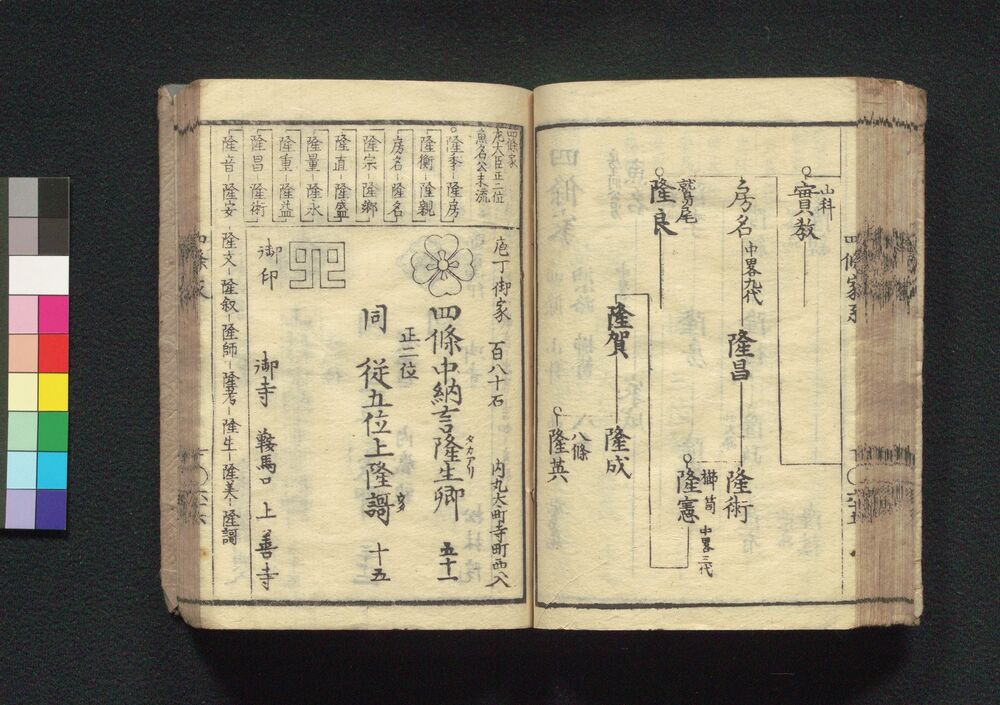 山科
實教
房名
中畧九代
隆昌
隆術
中畧三代
櫛笥
隆憲
鷲尾
隆良
隆賀
隆成
八條
隆英
四條家系
四條家
左大臣正二位
魚名公末流
隆季-隆房
隆衡-隆親
房名-隆名
隆宗-隆郷
隆直-隆盛
隆量-隆永
隆重-隆益
隆昌-隆術
隆音-隆安
隆文-隆叙-隆師-隆考-隆生-隆美-隆謌
庖丁御家
百八十石
内丸太町寺町西へ入
四條中納言隆生卿
タカアリ
五十一
正二位
同 従五位上隆謌
十五
御印
御寺 鞍馬口 上善寺